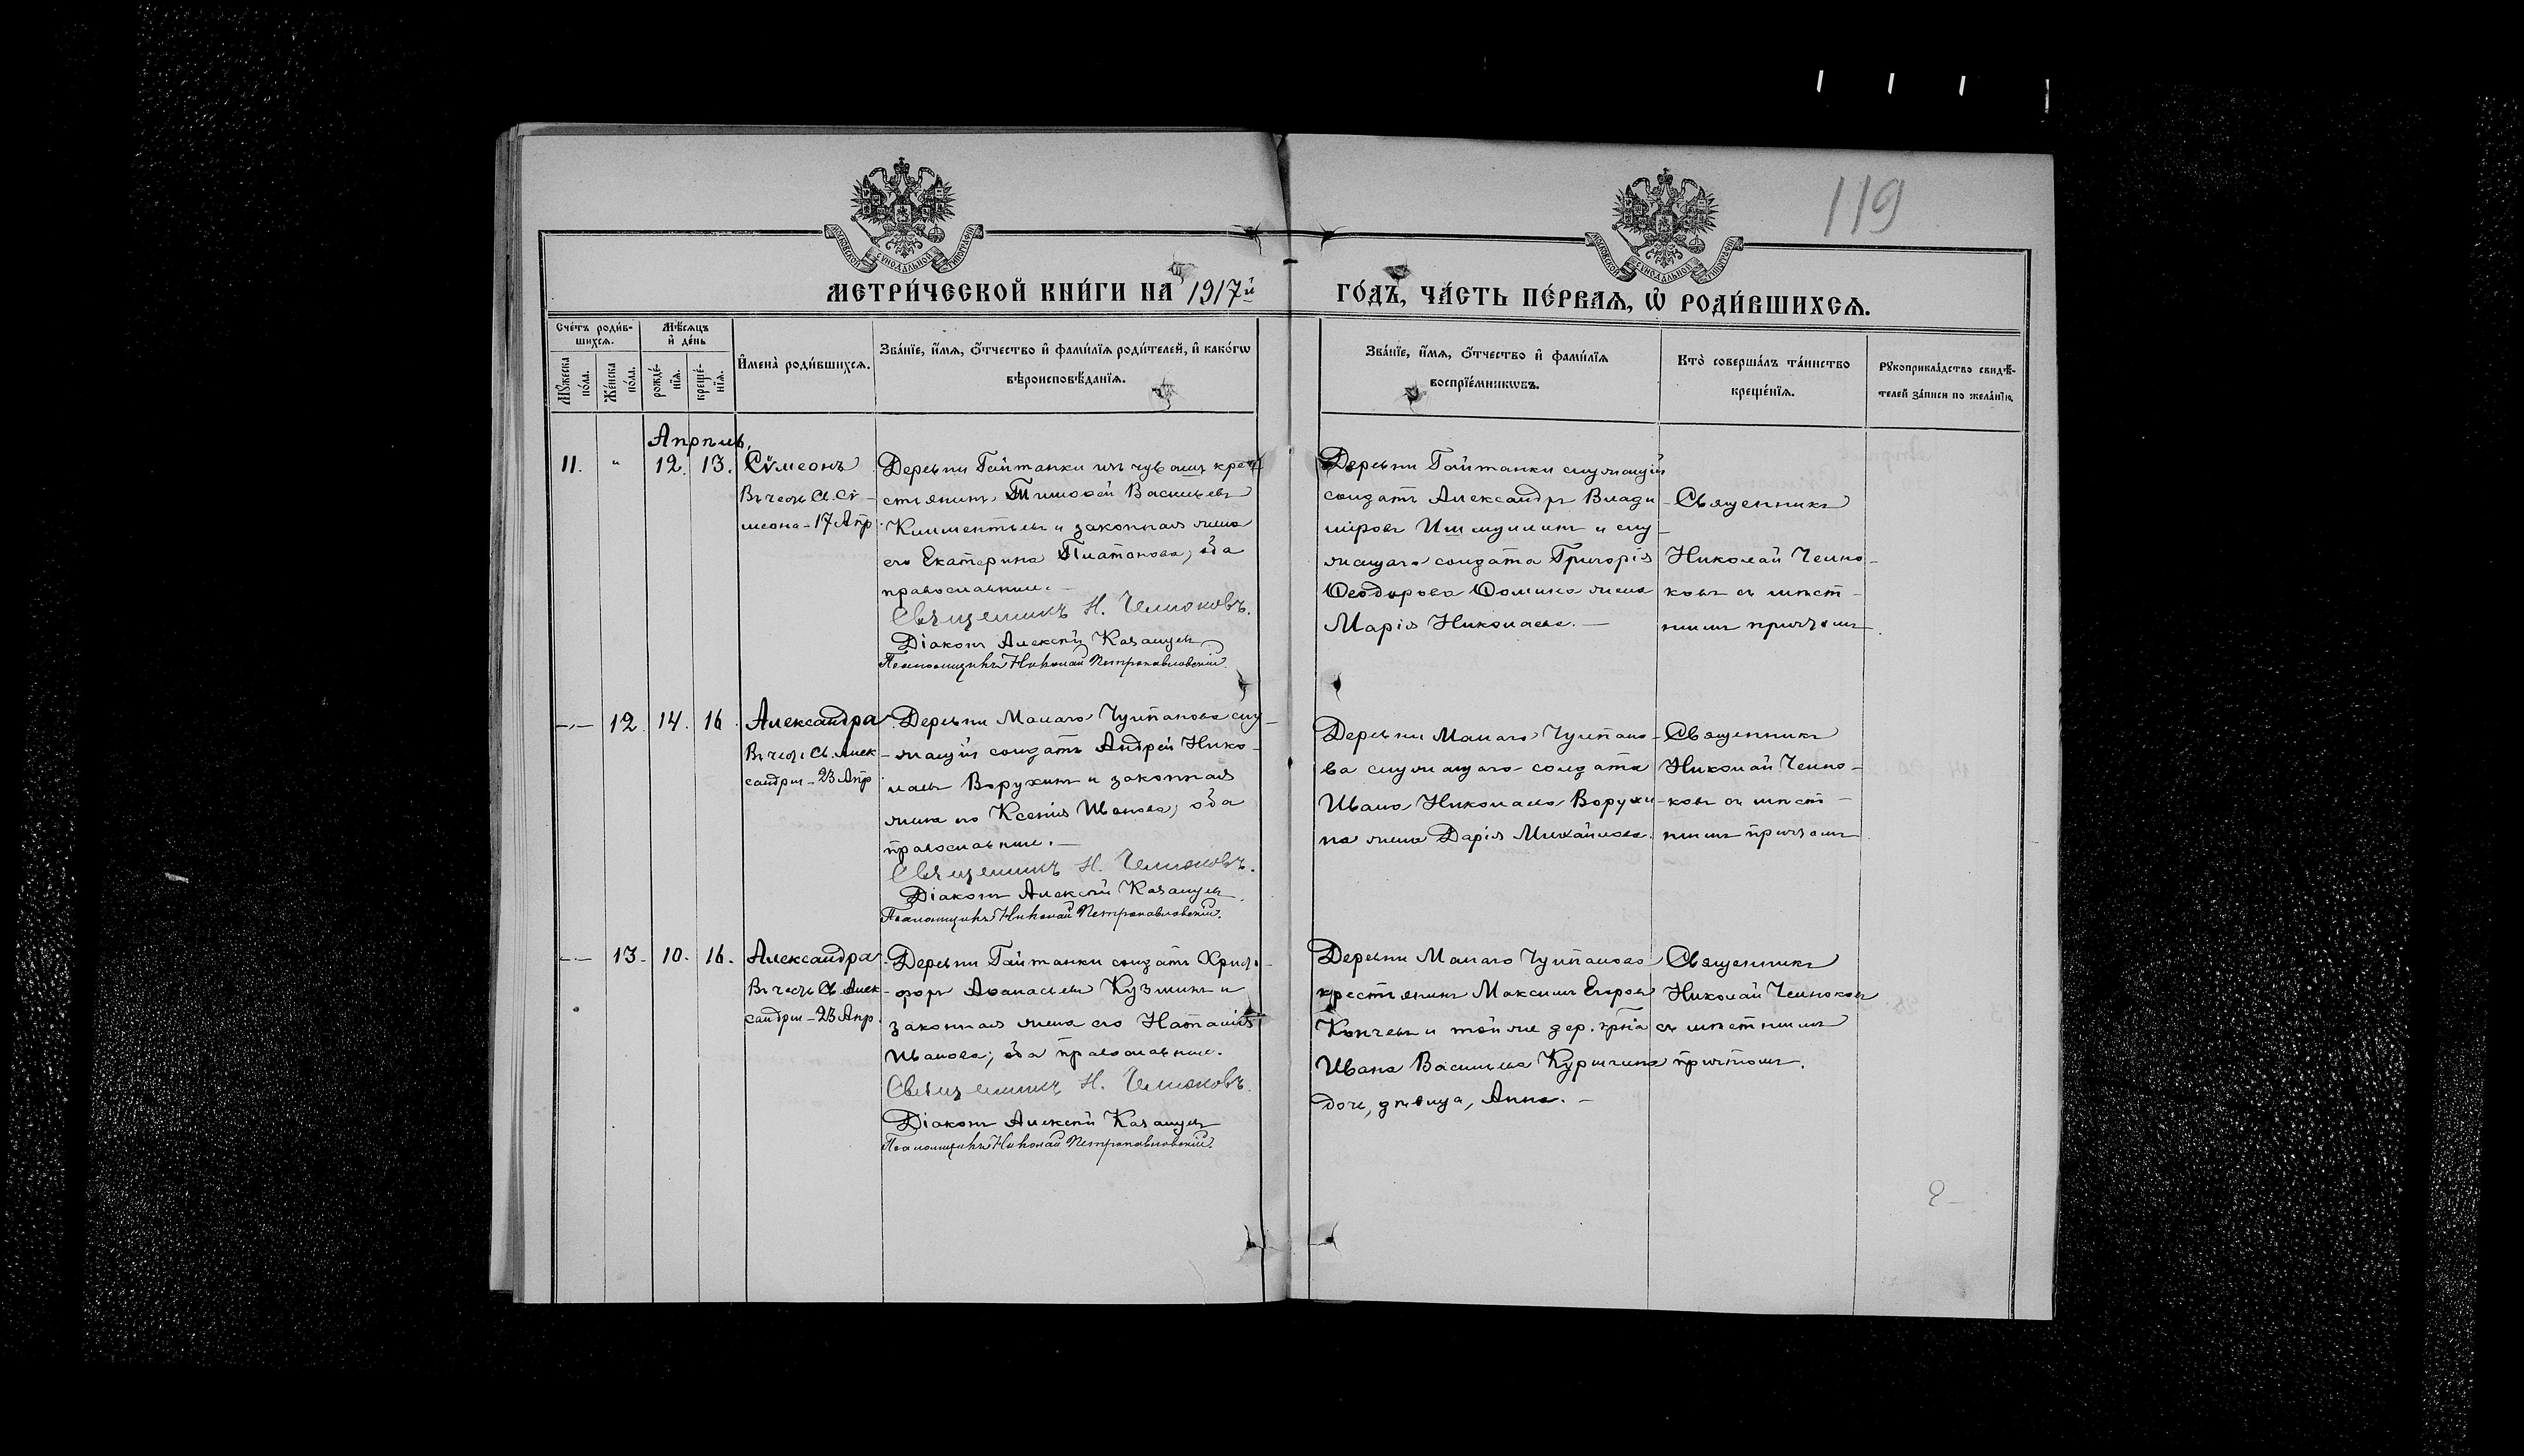 119
МОСКОВСКОЙ СѴНОДАЛЬНОЙ ТИПОГРАФІИ
МОСКОВСКОЙ СѴНОДАЛЬНОЙ ТИПОГРАФІИ
МЕТРИ́ЧЕСКОЙ КНИ́ГИ НА 1917й ГО́ДЪ, ЧА́СТЬ ПЕ́РВАЯ, Ѡ҆ РОДИ́ВШИХСЯ.
Сче́тъ роди́в-
шихся.
Мꙋ́жеска
по́ла.
Же́нска
по́ла.
Мѣ́сяцъ
и҆ де́нь
рожде́-
нїя.
креще́-
нїя.
И҆мена̀ роди́вшихся.
Зва́нїе, и҆́мя, ѻ҆́тчество и҆ фами́лїя роди́телей, и҆ како́гѡ
вѣроисповѣ́данїя.
Зва́нїе, и҆́мя, ѻ҆́тчество и҆ фами́лїя
воспрїе́мникѡвъ.
Кто̀ соверша́лъ та́инство
креще́нїя.
Рꙋкоприкла́дство свидѣ́-
телей за́писи по жела́нїю.
Апрѣль.
11. " 12. 13. Сѵмеонъ
Въ честь Св. Сѵ-
меона - 17 Апр.
Деревни Гайтанки изъ чувашъ кре-
стьянинъ Тимоѳей Васильевъ
Климентьевъ и законная жена
его Екатерина Платонова; оба
православные. —
Священникъ Н. Челноковъ.
Діаконъ Алексѣй Казанцевъ
Псаломщикъ Николай Петропавловскій.
Деревни Гайтанки служащій
солдатъ Александръ Влади
міровъ Ишмулинъ и слу-
жащаго солдата Григорія
Ѳеодорова Ѳомина жена
Марія Николаева. —
Священникъ
Николай Челно-
ковъ съ мѣст-
нымъ причтомъ.
—"— 12. 14. 16. Александра
Въ честь Св. Алек-
сандры - 23 Апр.
Деревни Малаго Чулпанова слу-
жащій солдатъ Андрей Нико-
лаевъ Ворухинъ и законная
жена его Ксенія Иванова; оба
православные. —
Священникъ Н. Челноковъ.
Діаконъ Алексѣй Казанцевъ
Псаломщикъ Николай Петропавловскій.
Деревни Малаго Чулпано-
ва служащаго солдата
Ивана Николаева Ворухи-
на жена Дарія Михайлова.
Священникъ
Николай Челно-
ковъ съ мѣст-
нымъ причтомъ
—"— 13. 10. 16. Александра
Въ честь Св. Алек-
сандры - 23 Апр.
Деревни Гайтанки солдатъ Христо-
форъ Аѳанасьевъ Кузминъ и
законная жена его Наталія
Иванова; оба православные.
Священникъ Н. Челноковъ.
Діаконъ Алексѣй Казанцевъ
Псаломщикъ Николай Петропавловскій.
Деревни Малаго Чулпанова
крестьянинъ Максимъ Егоровъ
и той же дер. крна
Ивана Васильева
дочь, дѣвица, Анна. —
Священникъ
Николай Челноковъ
съ мѣстнымъ
причтомъ.